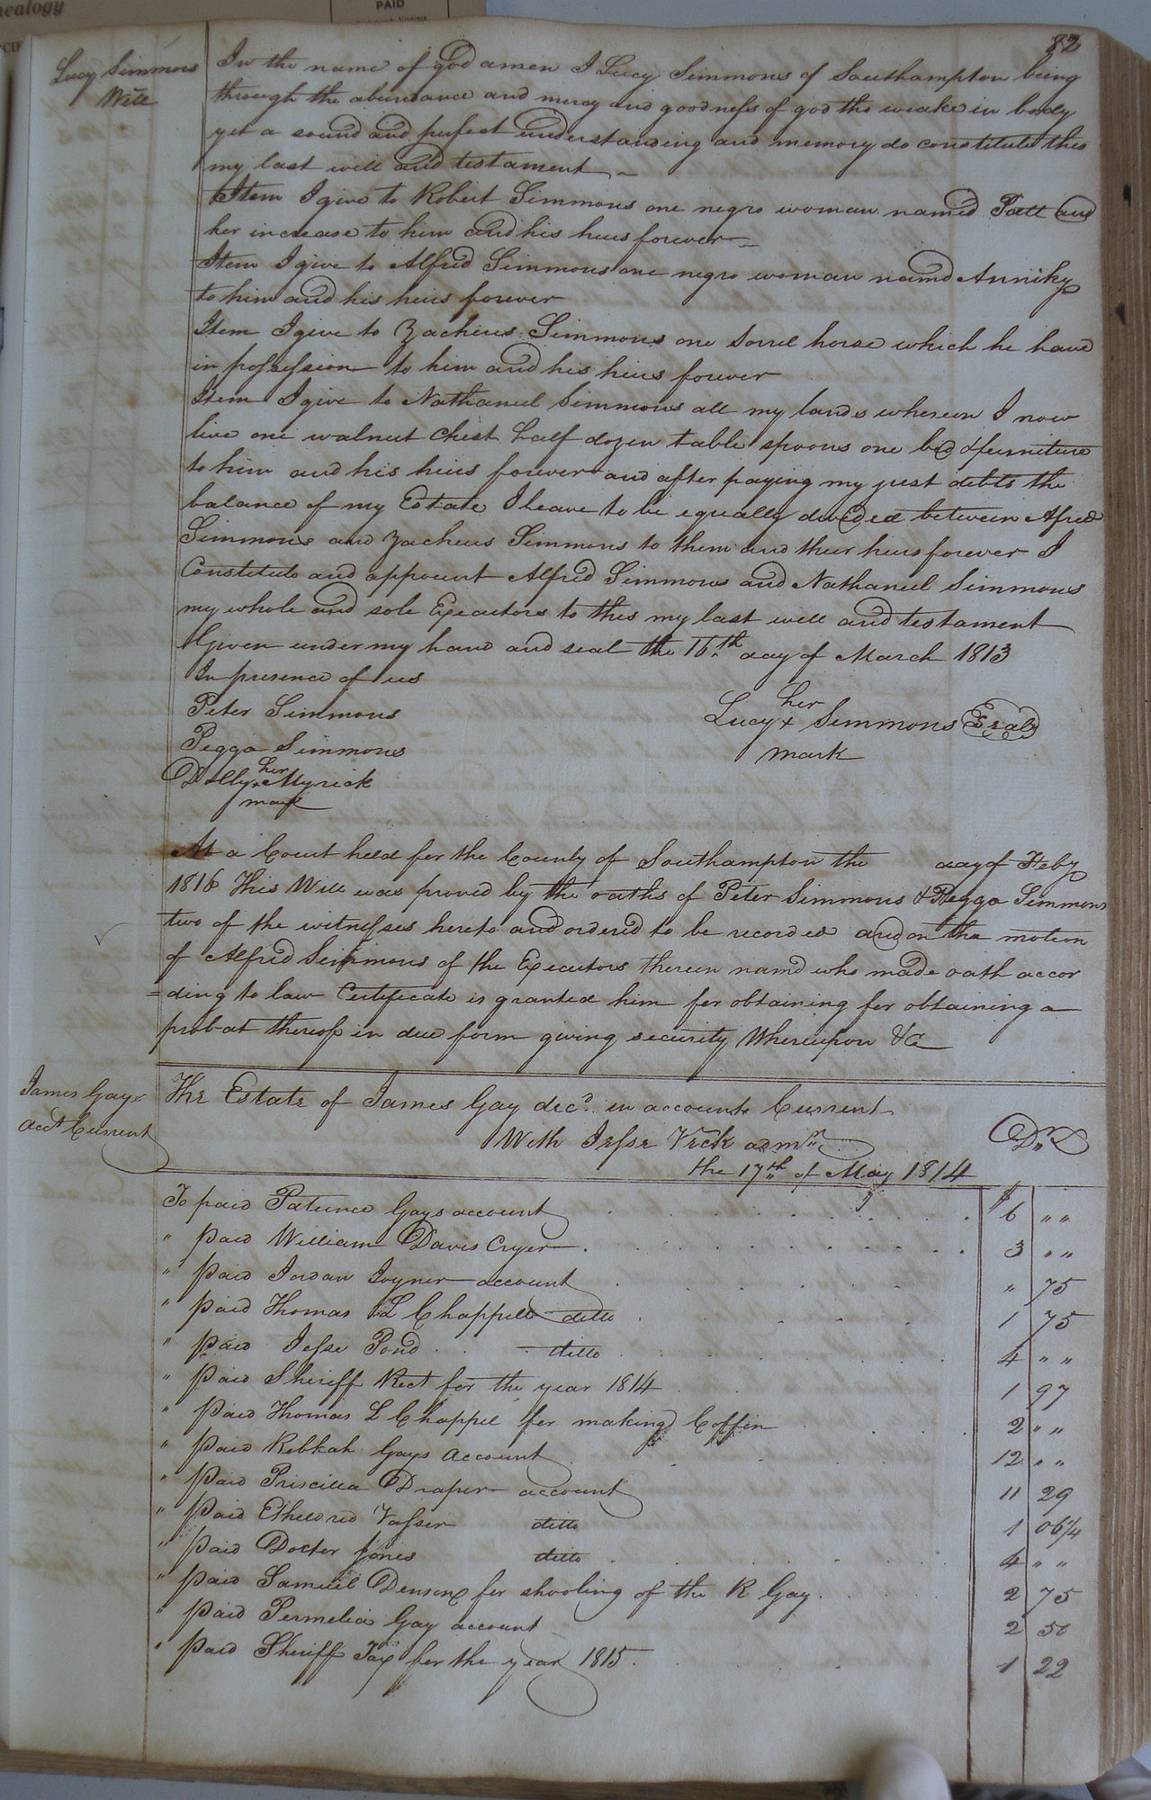 nealogy
PAID
82
Lucy Simmons
Will
In the name of god amen I Lucy Simmons of Southampton being
through the abundance and mercy and goodness of god tho weake in body
yet a sound and perfect understanding and memory do constitute this
my last will and testament
Item I give to Robert Simmons one negro woman named Patt and
her increase to him and his heirs forever
Item I give to Alfred Simmons one negro woman namd Anniky
to him and his heirs forever
Item I give to Zacheus Simmons one Sorrel horse which he have
in possession to him and his heirs forever
Item I give to Nathaniel Simmons all my lands wherein I now
live one walnut Chest half dozen table spoons one bed & furniture
to him and his heirs forever and after paying my just debts the
balance of my Estate I leave to be equally divided between Afred
Simmons and Zacheus Simmons to them and their heirs forever I
Constitute and appoint Alfred Simmons and Nathaniel Simmons
my whole and sole Executors to this my last will and testament
Given under my hand and seal the 16th day of March 1813
In presence of us
Peter Simmons
Pegga Simmons
Dolly her x Myrick
mark
her
Lucy x Simmons Seal
mark
At a Court held for the County of Southampton the day of Feby
1816 This Will was proved by the oaths of Peter Simmons & Pegga Simmons
two of the witnesses hereto and ordered to be recorded and on the motion
of Alfred Simmons of the Executors therein namd who made oath accor
=ding to law Certificate is granted him for obtaining for obtaining a
probat thereof in due form giving security Whereupon &C
James Gays
acct Current
The Estate of James Gay decd. in accounts Current
With Jesse Vick admr.
Dr
the 17th of May 1814
To paid Patience Gays account $6 " "
" paid William Davis Cryer 3 " "
" paid Jordan Joyner account " 75
" paid Thomas L Chappell ditto 1 75
" paid Jesse Pond ditto 4 " "
" paid Sheriff Rect for the year 1814 1 97
" paid Thomas L Chappel for making Coffin 2 " "
" paid Rebkah Gays account 12 " "
" paid Priscilla Draper account 11 29
" paid Etheldred Vasser ditto 1 06 1/4
" paid Docter Jones ditto 4 " "
" paid Samuel Denson for shooling of the R Gay 2 75
" paid Permelia Gay account 2 50
" paid Sheriff Tax for the year 1815 1 22